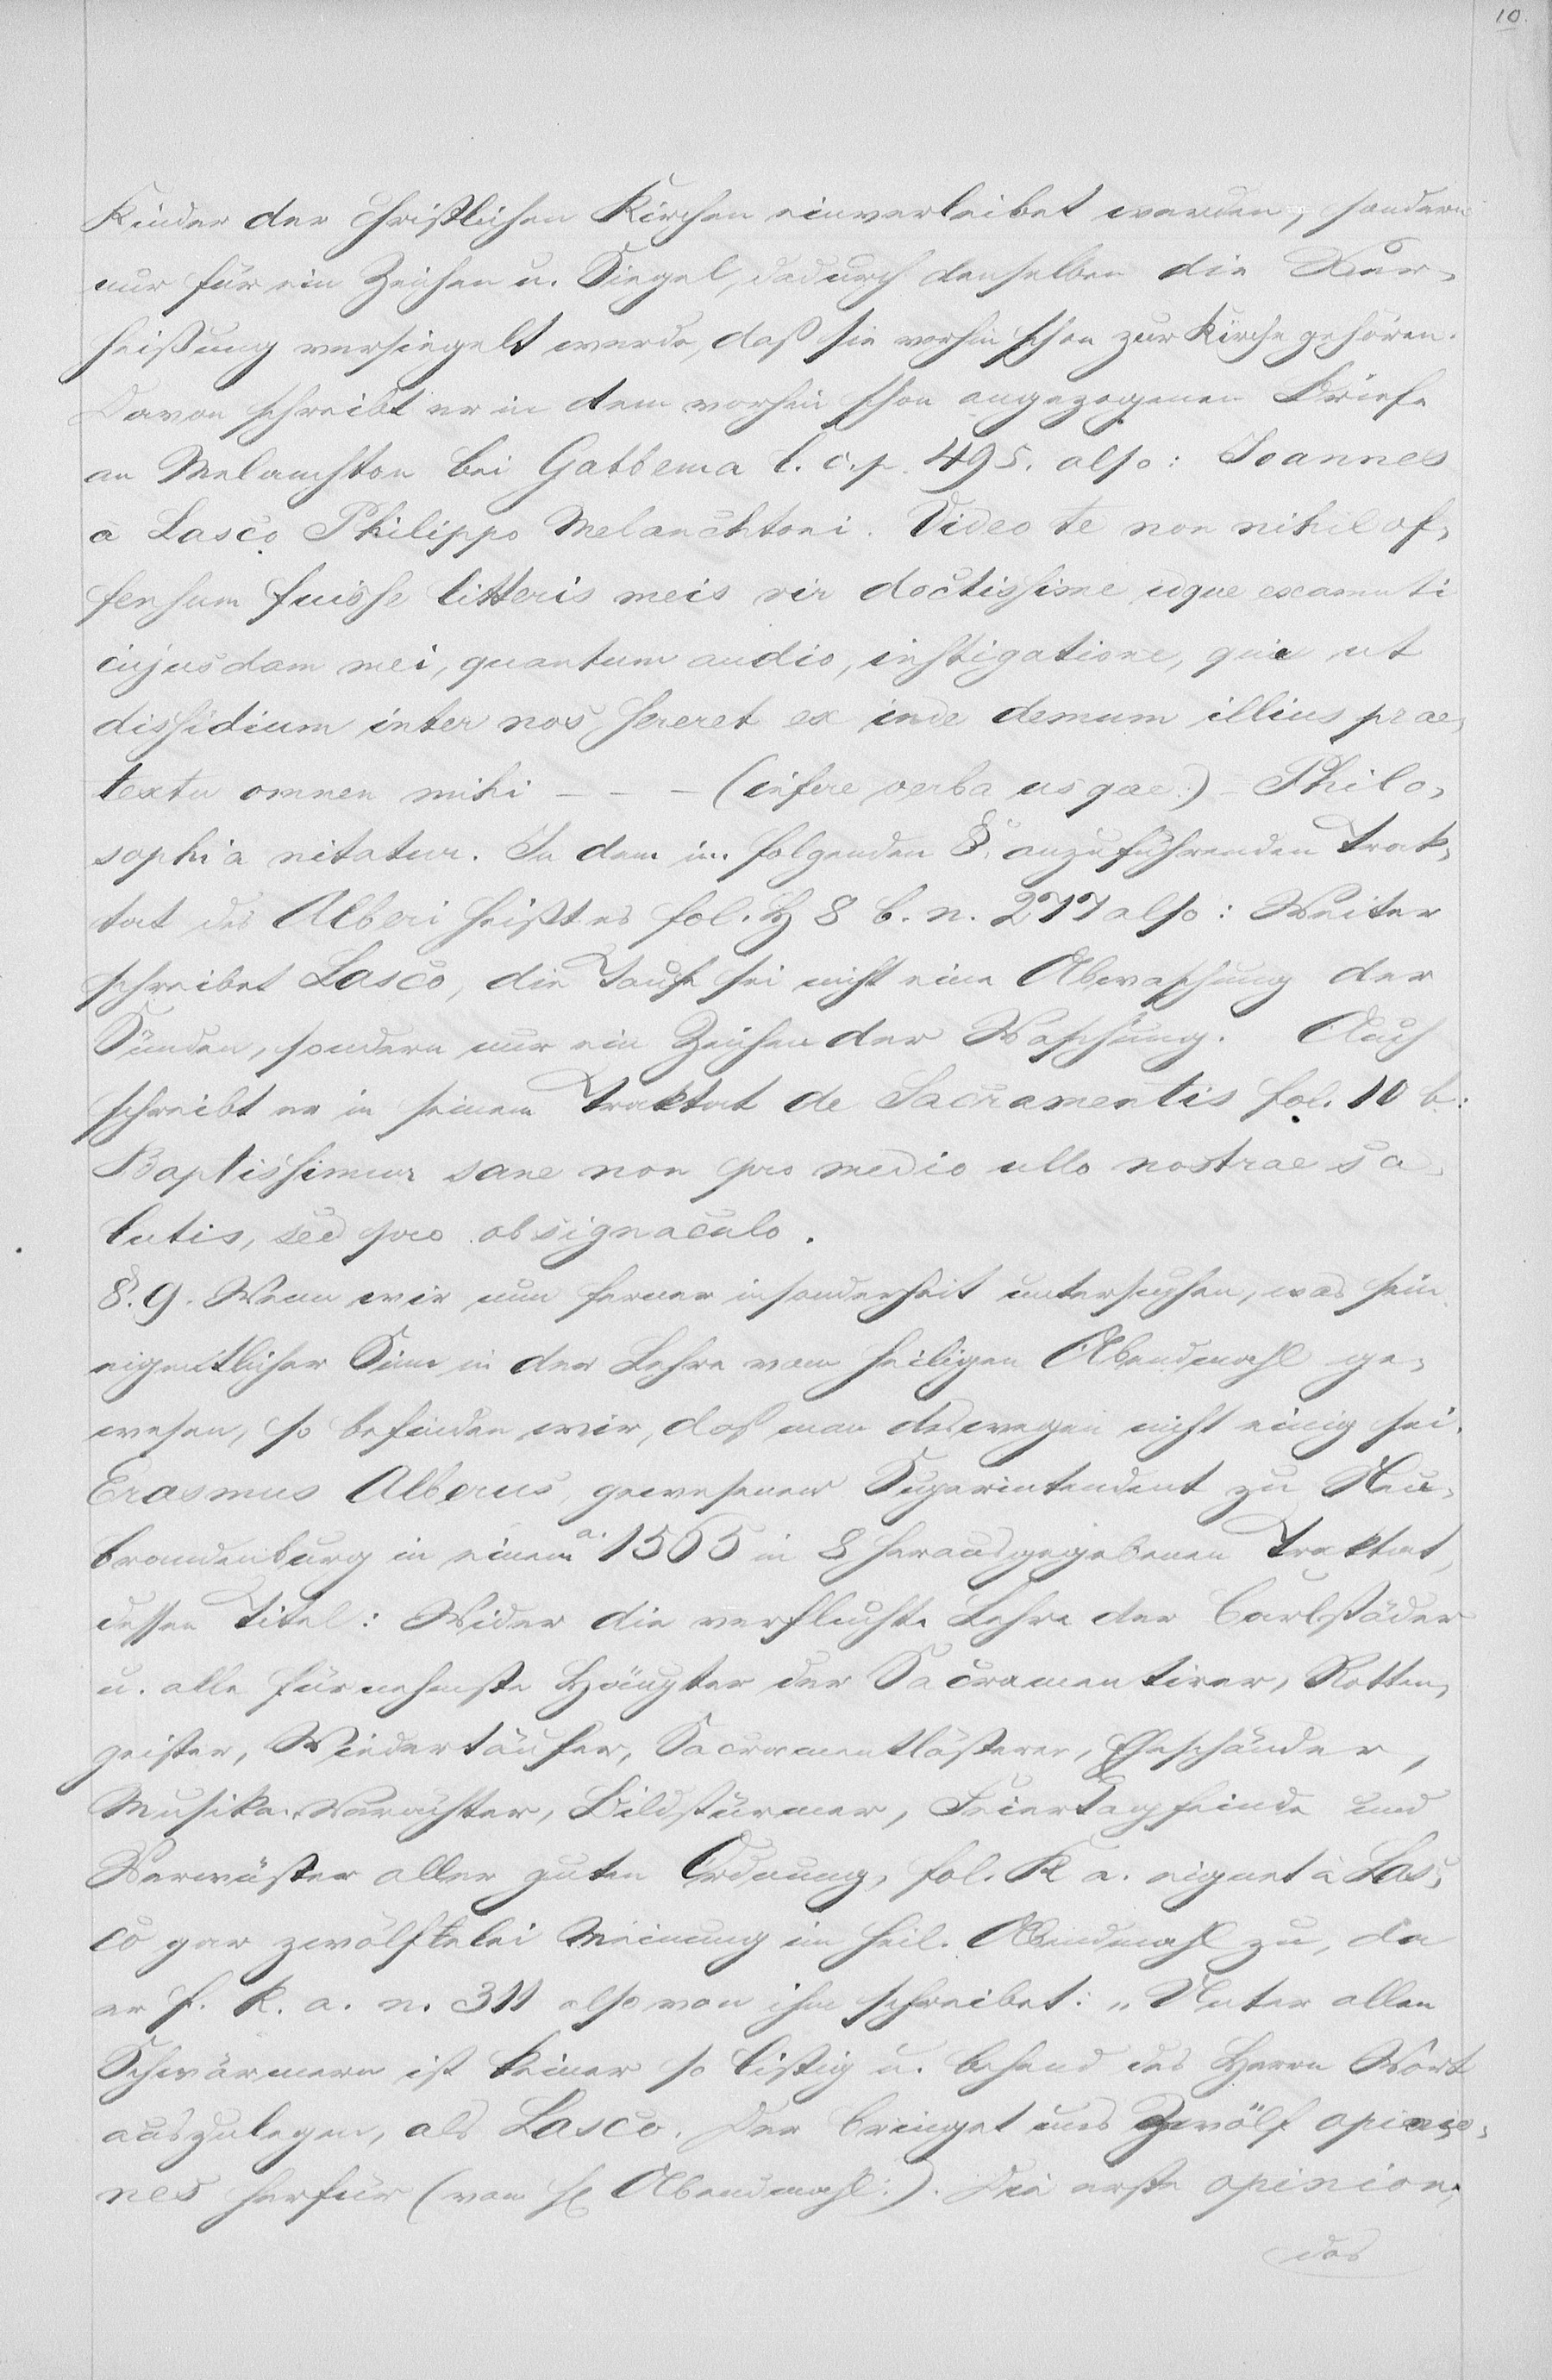 10.
Kinder der christlichen Kirchen einverleibet werden, sondern
nur für ein Zeichen u. Siegel, dadurch denselben die Ver-
heißung versiegelt werde, daß sie vorhin schon zur Kirche gehören.
Davon schreibt er in dem vorhin schon angezogenen Briefe
an Melanchton bei Gabbema l. c. p. 495. also: Joannes
a Lasco Philippo Melanchtoni. Video te non nihil of-
fensum fuisse litteris meis vir doctissime
cujusdam mei, quantum audio, instigatione, qui ut
dissidium inter nos sereret ex inde demum illius prae-
textu omnen mihi - - - (infere verba usque:) - Philo-
sophia nitatur. In dem im folgenden §. anzuführenden Trak-
tat des Alberi heißt es fol. H 8 b. n. 277 also: Weiter
schreibet Lasco, die Taufe sei nicht eine Abwaschung der
Sünden, sondern nur ein Zeichen der Waschung. Auch
schreibt er in seinem Traktat de Sacramentis fol. 10 b:
Baptissimur sane non pro medio ullo nostrae sa-
lutis, sed pro obsignaculo.
§. 9. Wenn wir nun ferner insonderheit untersuchen, was sein
eigentlicher Sinn in der Lehre vom heiligen Abendmahl ge-
wesen, so befinden wir, daß man deswegen nicht einig sei.
Erasmus Alberus, gewesener Superintendent zu Neu-
brandenburg in einem a. 1565 in 8 herausgegebenen Traktat,
dessen Titel: Wider die verfluchte Lehre der Carlstäder
u. alle fürnehmste Häupter der Sacramentirer, Rotten-
geister, Wiedertäufer, Sacramentlästerer, Eheschänder,
Musika-Verächter, Bildstürmer, Feiertagfeinde und
Verwüster aller guten Ordnung, fol. K a. eignet à Las-
co gar zwölfterlei Meinung im heil. Abendmahl zu, da
er f. K. a. n. 311 also von ihm schreibet: „Unter allen
Schwärmern ist keiner so listig u. behend des Herrn Wort
auszulegen, als Lasco. Der bringet uns zwölf opinio-
nes herfür (vom hl Abendmahl:). Die erste opinion,
das